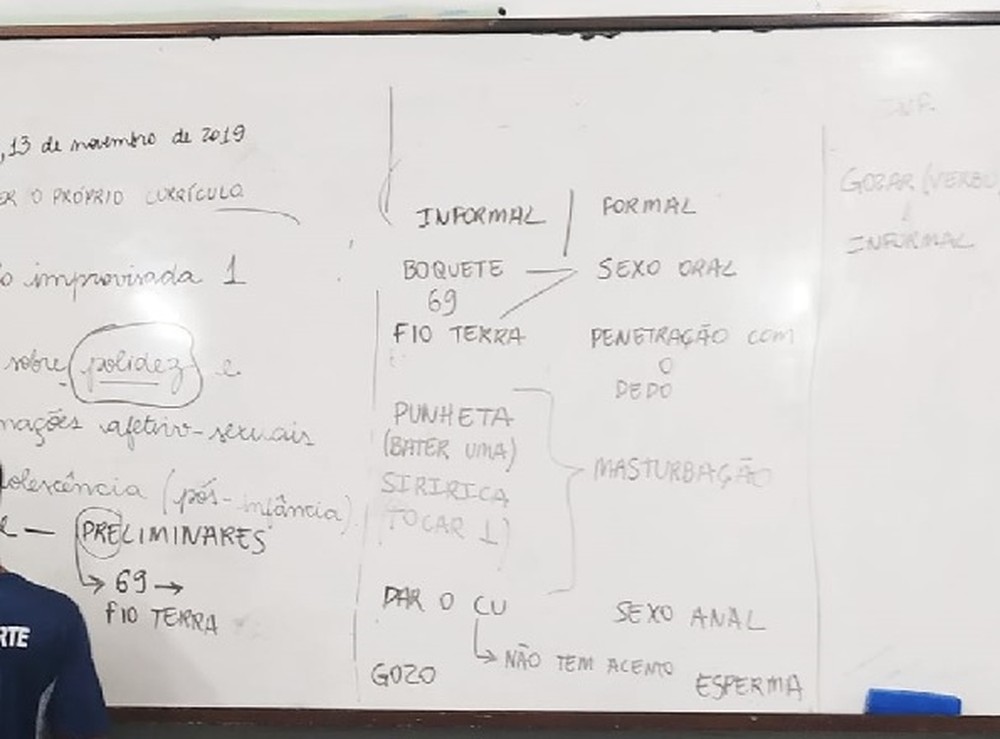 , 13 de novembro de 2019
ER O PRÓPRIO CURRÍCULO
o improvisada 1
sobre polidez e
mações afetivo-sexuais
olescência (pós-infância)
e — PRELIMINARES
69 →
FIO TERRA
RTE
INFORMAL | FORMAL
BOQUETE — SEXO ORAL
69
FIO TERRA PENETRAÇÃO COM
O
DEDO
PUNHETA
(BATER UMA)
SIRIRICA
(TOCAR 1)
MASTURBAÇÃO
DAR O CU SEXO ANAL
NÃO TEM ACENTO
GOZO ESPERMA
INF.
GOZAR (VERBO
INFORMAL